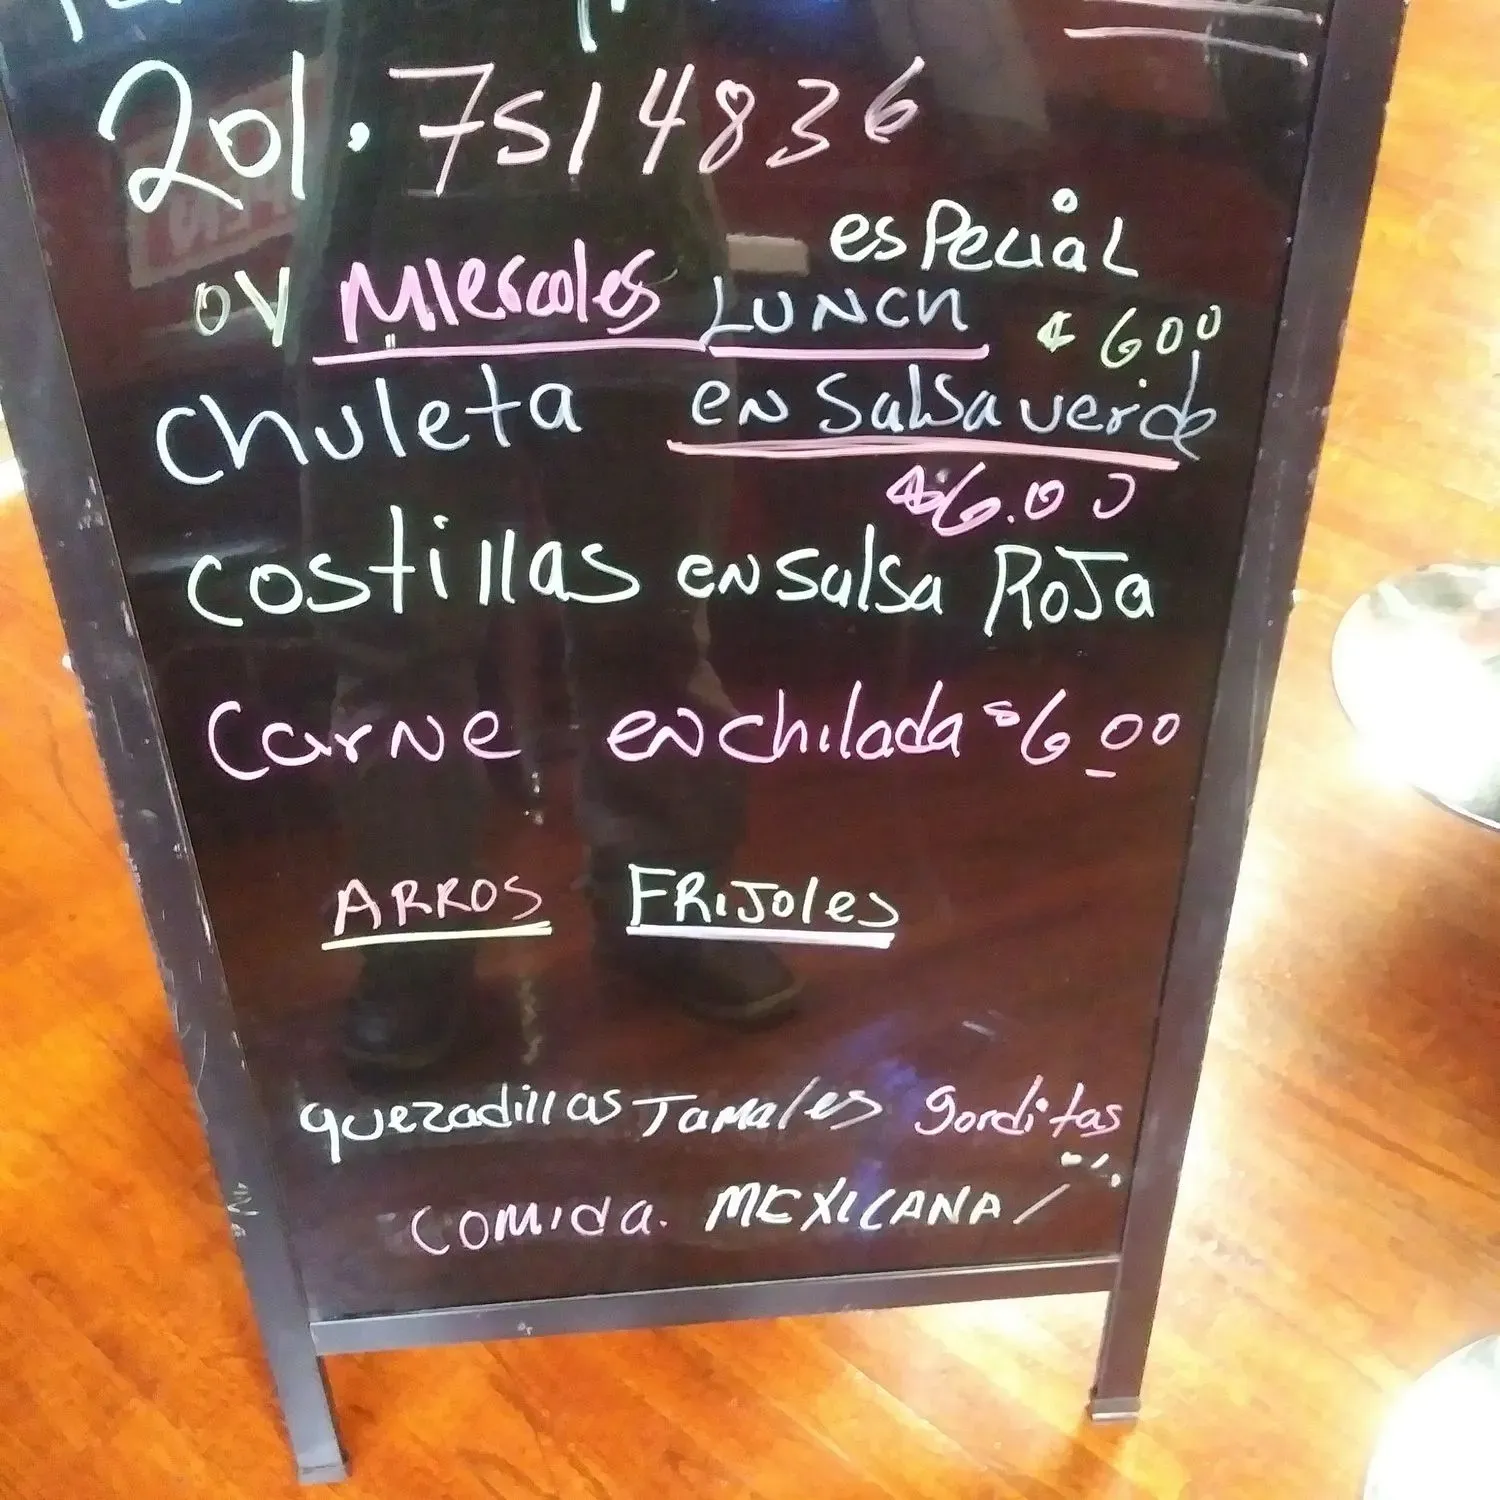 201.7514836
especial
oy Miercoles LUNCH $600
chuleta en Salsa verde
$6.00
costillas en salsa RoJa
carNe enchilada $6 00
ARROS FRiJoles
quezadillas Tamales gorditas
comida. MEXICANA